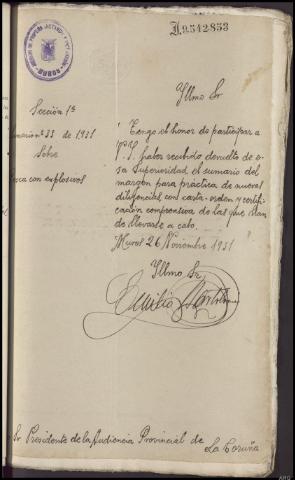 I.9.542853
BURGOS
Yllmo Sr
Sección 1ª
nº 33 de 1931
Sobre
con explosivos
Tengo el honor de participar a
V.S. haber recibido devuelto de e-
sa Superioridad el sumario del
margen para práctica de nuevas
diligencias, con carta-orden y certifi-
cación comprensiva de las que han
de llevarse a cabo.
Muros 26 Noviembre 1931
Yllmo Sr.
Sr Presidente de la Audiencia Provincial de
La Coruña